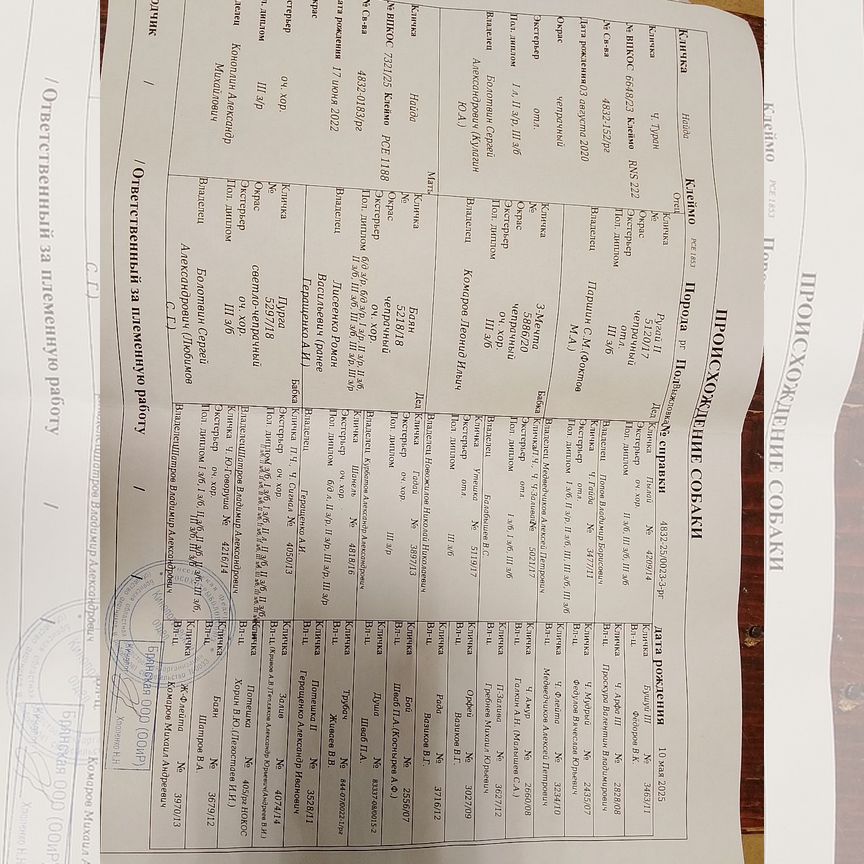 ПРОИСХОЖДЕНИЕ СОБАКИ
Кличка Найда Клеймо РСЕ 1853 Порода рг Пол Выжловка № справки 4832-25/0023-3-рг дата рождения 10 мая 2025
Отец
Кличка Ч. Туран
№ ВПКОС 6648/23 Клеймо RNS 222
№ Св-ва 4832-152/рг
Дата рождения 03 августа 2020
Окрас чепрачный
Экстерьер отл.
Пол. диплом I л, II з/р, III з/б
Владелец Болотвин Сергей
Александрович (Кулагин
Ю.А.)
Мать
Кличка Найда
№ ВПКОС 7321/25 Клеймо РСЕ 1188
№ Св-ва 4832-0183/рг
Дата рождения 17 июня 2022
Экстерьер оч. хор.
Пол. диплом III з/р
Владелец Коноплин Александр
Михайлович
Дед
Кличка Ругай II
№ 5120/17
Окрас чепрачный
Экстерьер отл.
Пол. диплом III з/б
Владелец Паршин С.М.(Фоктов
М.А.)
Бабка
Кличка З-Мечта
№ 5886/20
Окрас чепрачный
Экстерьер оч. хор.
Пол. диплом III з/б
Владелец Комаров Леонид Ильич
Дед
Кличка Баян
№ 5218/18
Окрас чепрачный
Экстерьер оч. хор.
Пол. диплом б/д з/р, б/д з/р, I з/р, II з/б,
II з/б, III з/б, III з/б, III з/р, III з/р
Владелец Лисеенко Роман
Васильевич (ранее
Геращенко А.И.)
Бабка
Кличка Пурга
№ 5297/18
Окрас светло-чепрачный
Экстерьер оч. хор.
Пол. диплом III з/б
Владелец Болотвин Сергей
Александрович (Любимов
С. Г.)
Кличка Пылай № 4209/14
Экстерьер оч. хор.
Пол. диплом II з/б, III з/б, III з/б
Владелец Попов Владимир Борисович
Кличка Ч. Гайда № 3477/11
Экстерьер отл.
Пол. диплом I з/б, II з/р, II з/б, III з/б, III з/б, III з/б
Владелец Медведчиков Алексей Петрович
Кличка П.Ч., Ч. Ч-Заливай № 5021/17
Экстерьер отл.
Пол. диплом I з/б, I з/б, III з/б
Владелец Балабышев В.С.
Кличка Утешка № 5119/17
Экстерьер отл.
Пол. диплом III з/б
Владелец Новожилов Николай Николаевич
Кличка Гадай № 3897/13
Экстерьер оч. хор.
Пол. диплом III з/р
Владелец Курбатов Александр Александрович
Кличка Шанель № 4818/16
Экстерьер оч. хор.
Пол. диплом б/д л, II з/р, II з/р, III з/р, III з/р
Владелец Геращенко А.И.
Кличка П.Ч., Ч. Сигнал № 4050/13
Экстерьер оч. хор.
Владелец Шатров Владимир Александрович
Кличка Ч. Ю-Говоруша № 4216/14
Экстерьер оч. хор.
Владелец Шатров Владимир Александрович
Кличка Бушуй III № 3463/11
Вл-ц. Фёдоров В.К.
Кличка Ч. Арфа III № 2828/08
Вл-ц. Проскура Валентин Владимирович
Кличка Ч. Мудрый № 2435/07
Вл-ц. Федулов Вячеслав Юрьевич
Кличка Ч. Флейта № 3234/10
Вл-ц. Медведчиков Алексей Петрович
Кличка Ч. Амур № 2660/08
Вл-ц. Галкин А.Н. (Малашев С.А.)
Кличка П-Залива № 3627/12
Вл-ц. Гребнев Михаил Юрьевич
Кличка Орфей № 3027/09
Вл-ц. Вазиков В.Г.
Кличка Рада № 3716/12
Вл-ц. Вазиков В.Г.
Кличка Бой № 2556/07
Вл-ц. Шваб П.А.(Коснырев А.Ф.)
Кличка Душа № 83337-08/0015-2
Вл-ц. Шваб П.А.
Кличка Трубач № 844-07/0022-1/рг
Вл-ц. Живаев В.В.
Кличка Потешка II № 3528/11
Вл-ц. Геращенко Александр Иванович
Кличка Залив № 4074/14
Кличка Потешка № 405/рг НОКОС
Вл-ц. Хорин П.Ю.(Пегостаев И.И.)
Кличка Баян № 3679/12
Вл-ц. Шатров В.А.
Кличка Ж-Флейта № 3970/13
Вл-ц. Комаров Михаил Андреевич
/ / Ответственный за племенную работу / /
Брянская ООО (ООиР)
Хлопенко Н.Н.